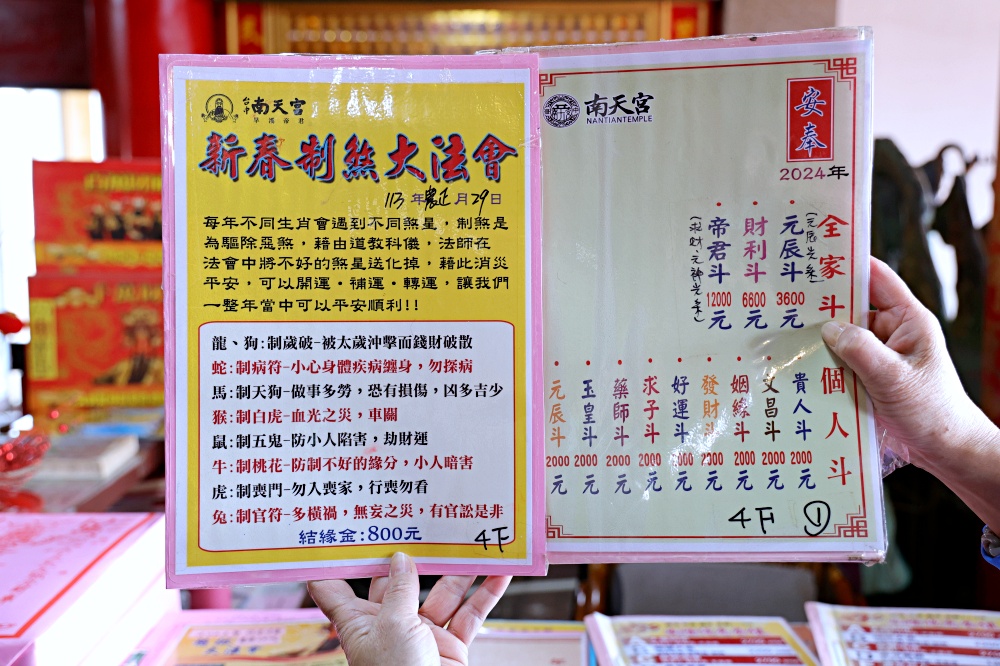 台中
南天宮
新春制煞大法會
113年農正月29日
每年不同生肖會遇到不同煞星，制煞是
為驅除惡煞，藉由道教科儀，法師在
法會中將不好的煞星送化掉，藉此消災
平安，可以開運・補運・轉運，讓我們
一整年當中可以平安順利!!
龍、狗:制歲破-被太歲沖擊而錢財破散
蛇:制病符-小心身體疾病纏身，勿探病
馬:制天狗-做事多勞，恐有損傷，凶多吉少
猴:制白虎-血光之災，車關
鼠:制五鬼-防小人陷害，劫財運
牛:制桃花-防制不好的緣分，小人暗害
虎:制喪門-勿入喪家，行喪勿看
兔:制官符-多橫禍，無妄之災，有官訟是非
結緣金:800元
4F
南天宮
NANTIANTEMPLE
安奉
2024年
全家斗
元辰斗 3600元
財利斗 6600元
帝君斗 12000元
個人斗
貴人斗 2000元
文昌斗 2000元
姻緣斗 2000元
發財斗 2000元
好運斗 2000元
求子斗 2000元
藥師斗 2000元
玉皇斗 2000元
元辰斗 2000元
4F ①